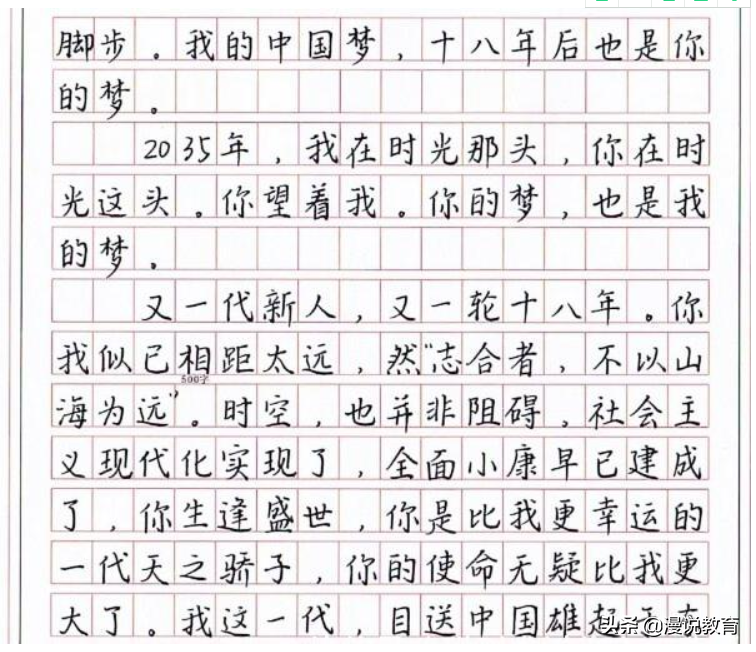 脚步。我的中国梦，十八年后也是你
的梦。
2035年，我在时光那头，你在时
光这头。你望着我。你的梦，也是我
的梦。
又一代新人，又一轮十八年。你
我似已相距太远，然“志合者，不以山
500字
海为远”。时空，也并非阻碍，社会主
义现代化实现了，全面小康早已建成
了，你生逢盛世，你是比我更幸运的
一代天之骄子，你的使命无疑比我更
大了。我这一代，目送中国雄起
头条@漫说教育